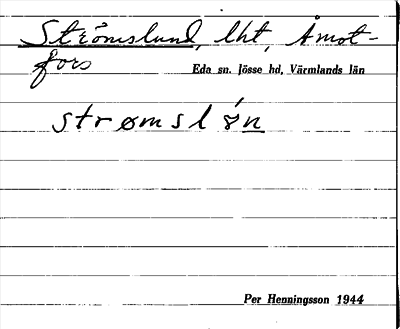 Strömslund, lht, Åmot-
fors
Eda sn. Jösse hd, Värmlands län
strømsló̵n
Per Henningsson 1944